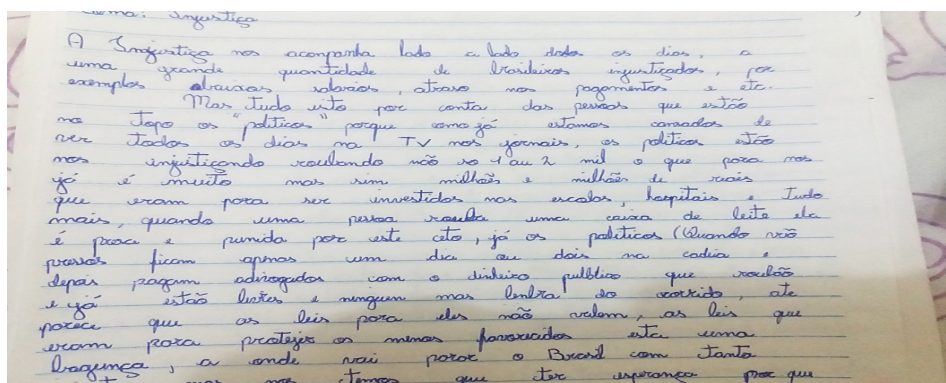 Tema: Injustiça
A Injustiça nos acompanha lado a lado todos os dias, a
uma grande quantidade de brasileiros injustiçados, por
exemplos abaixos, salarios, atraso nos pagamentos e etc.
Mas tudo isto por conta das pessoas que estão
no topo os "politicos" porque como já estamos cansados de
ver todos os dias na TV nos jornais, os politicos estão
nos injustiçando roubando não so 1 ou 2 mil o que para nos
já é muito mas sim milhões e milhões de reais
que eram para ser investidos nas escolas, hospitais e tudo
mais, quando uma pessoa rouba uma caixa de leite ela
é presa e punida por este ato, já os politicos (Quando vão
presos ficam apenas um dia ou dois na cadeia e
depois pagam advogados com o dinheiro publico que roubão
e já estão livres e ninguem mas lembra do ocorrido, ate
parece que as leis para eles não valem, as leis que
eram para proteger os menos favorecidos esta uma
bagunça, a onde vai parar o Brasil com tanta
mas nos temos que ter esperança por que